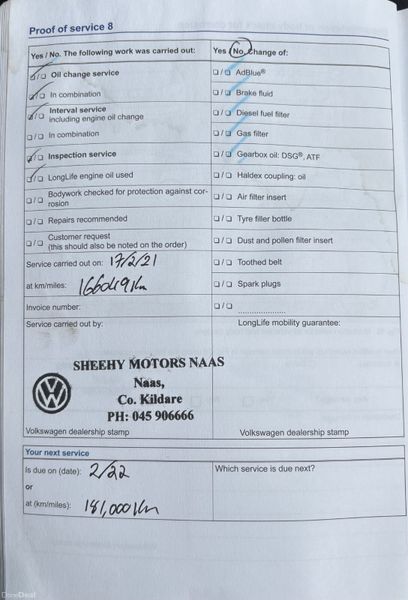 Proof of service 8
Yes / No. The following work was carried out:
☐ / ☐ Oil change service
☐ / ☐ In combination
☐ / ☐ Interval service
including engine oil change
☐ / ☐ In combination
☐ / ☐ Inspection service
☐ / ☐ LongLife engine oil used
☐ / ☐ Bodywork checked for protection against cor-
rosion
☐ / ☐ Repairs recommended
☐ / ☐ Customer request
(this should also be noted on the order)
Service carried out on: 17/2/21
at km/miles: 166049 Km
Invoice number:
Service carried out by:
SHEEHY MOTORS NAAS
Naas,
Co. Kildare
PH: 045 906666
Volkswagen dealership stamp
Yes / No. Change of:
☐ / ☐ AdBlue®
☐ / ☐ Brake fluid
☐ / ☐ Diesel fuel filter
☐ / ☐ Gas filter
☐ / ☐ Gearbox oil: DSG®, ATF
☐ / ☐ Haldex coupling: oil
☐ / ☐ Air filter insert
☐ / ☐ Tyre filler bottle
☐ / ☐ Dust and pollen filter insert
☐ / ☐ Toothed belt
☐ / ☐ Spark plugs
☐ / ☐ ....................
LongLife mobility guarantee:
Volkswagen dealership stamp
Your next service
Is due on (date): 2/22
or
at (km/miles): 181,000 Km
Which service is due next?
DoneDeal